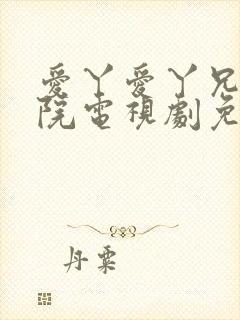 愛丫愛丫兄
院電視劇免
丹粟